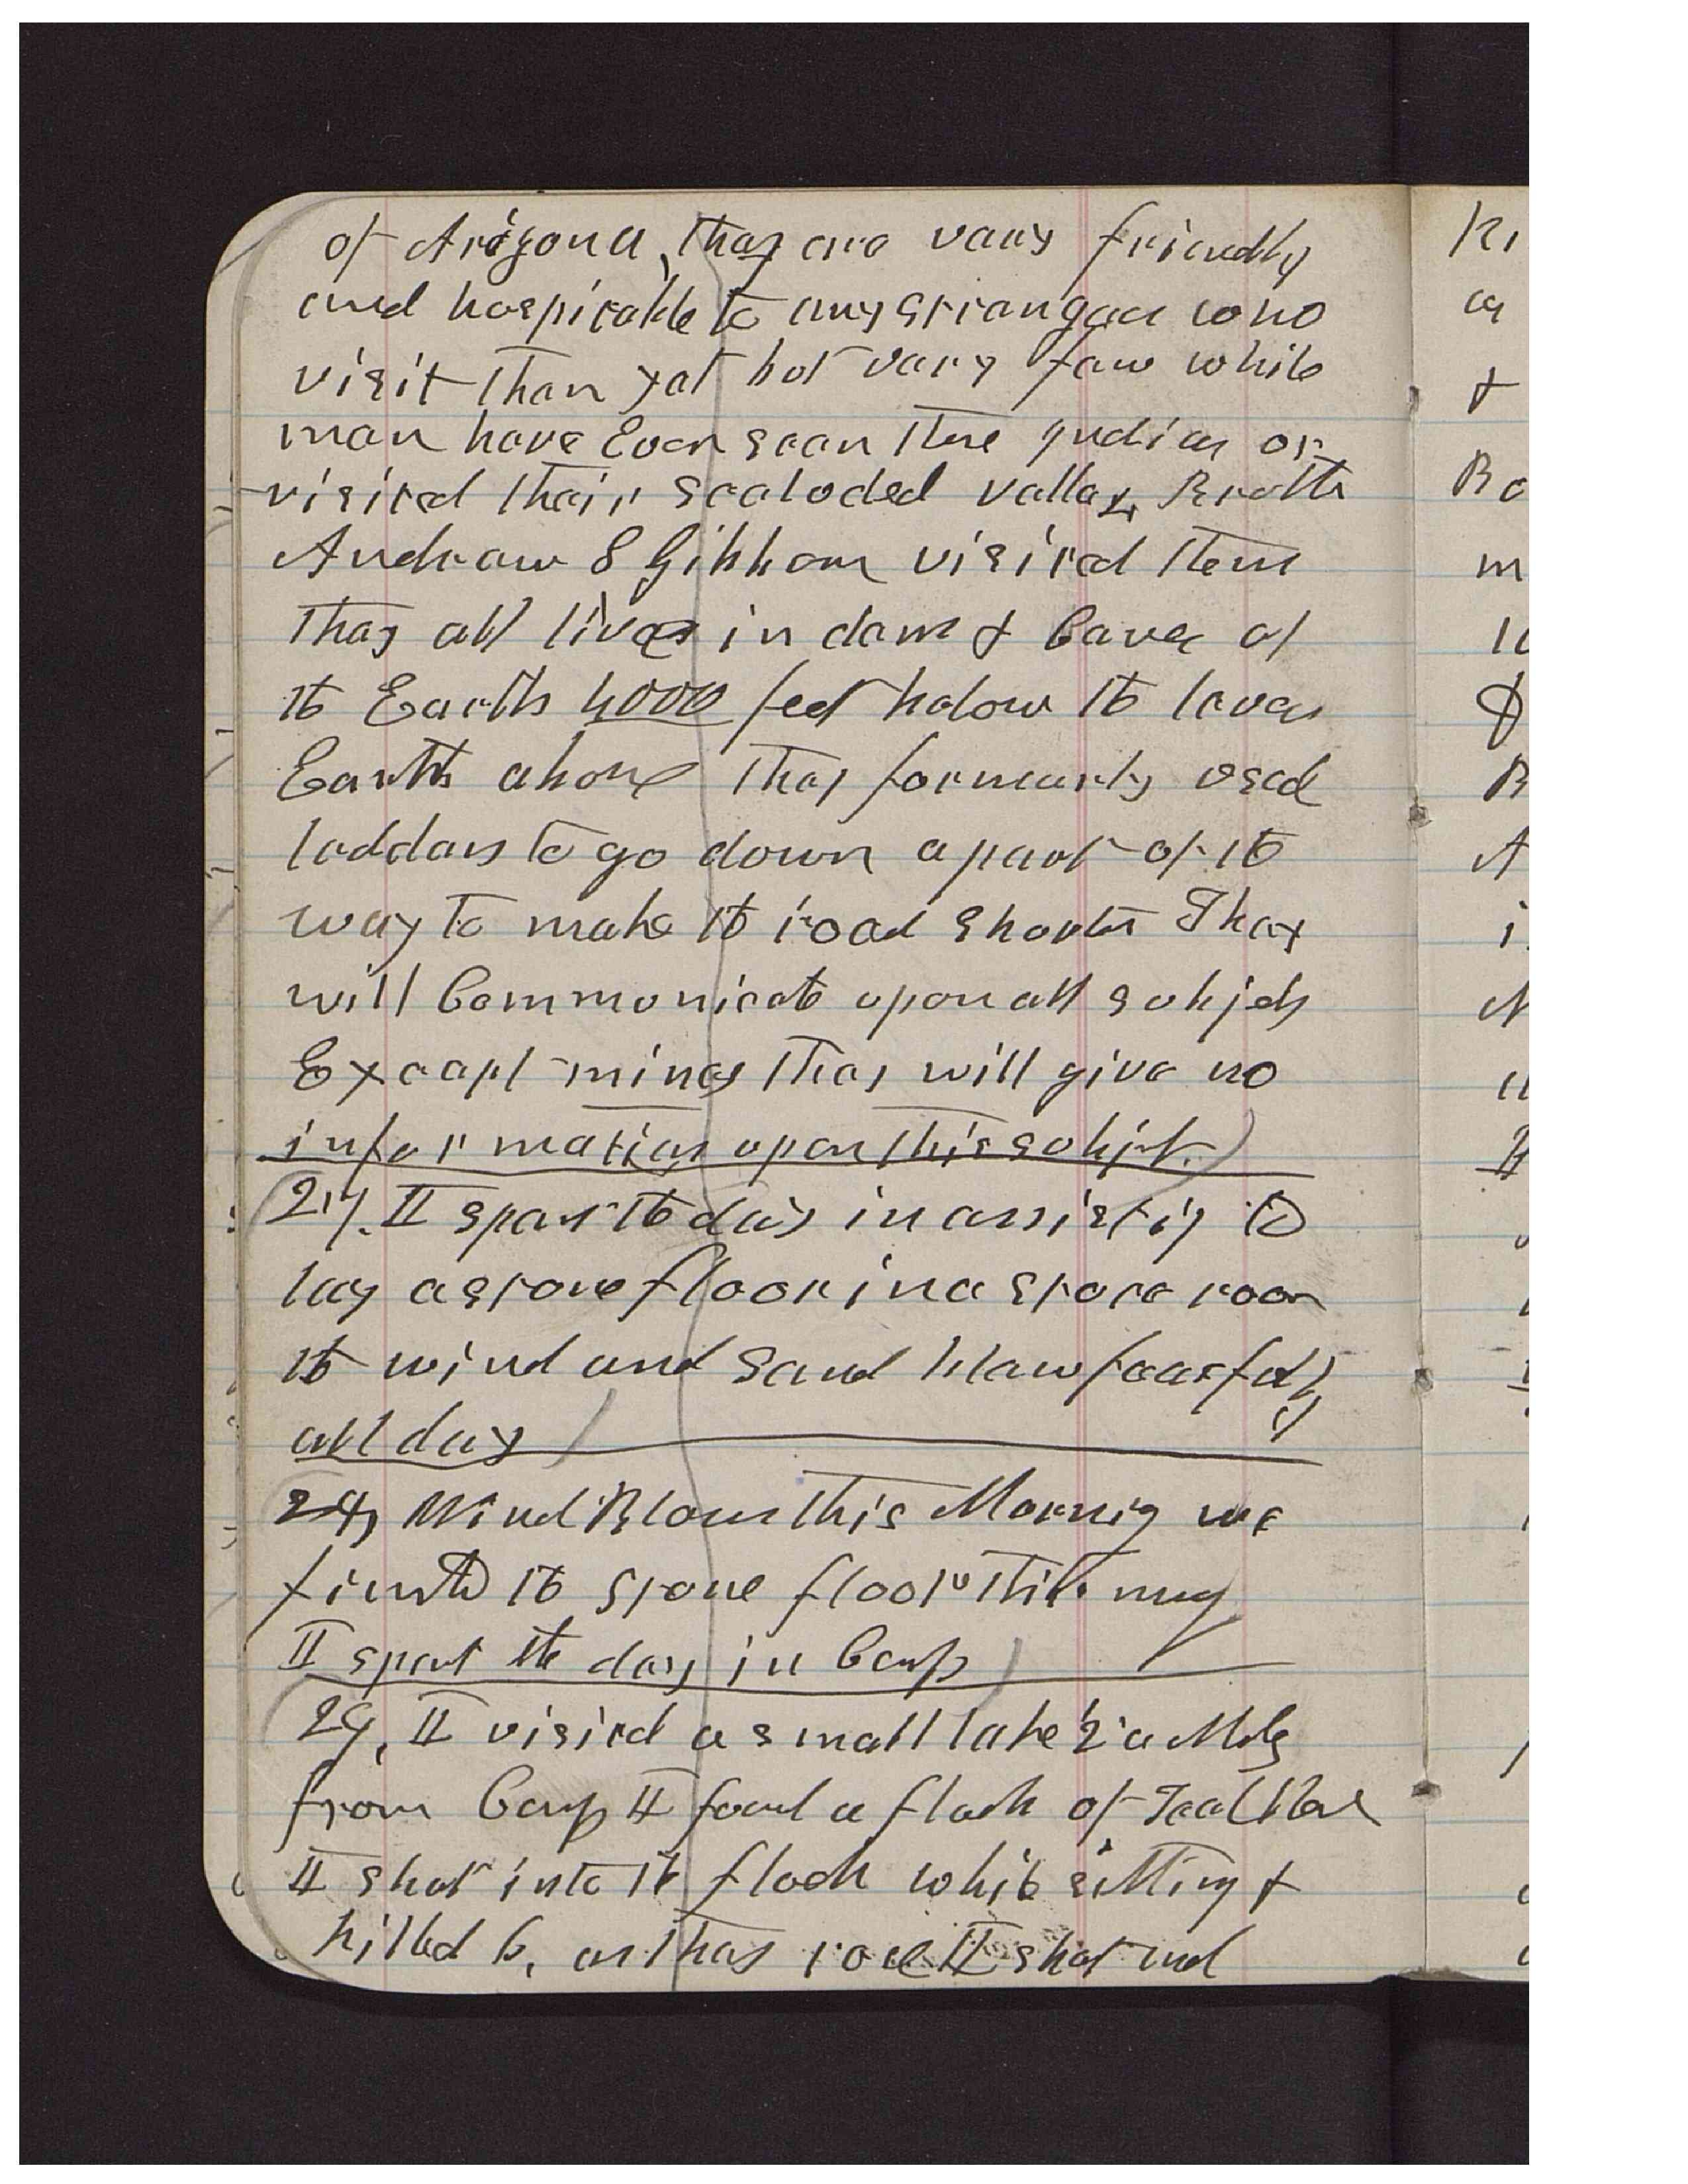 of Arizona, they are vary friendly
and hospitable to any strangers who
visit them yet but vary few white
men have Ever seen these Indians or
visited their secluded valley, Brother
Andrew S Gibbons visited them
They all lives in dens & Caves of
the Earth 4000 feet below the level
Earth above They formerly used
ladders to go down a part of the
way to make the road shorter They
will Communicate upon all subjects
Except mines they will give no
information upon this subjet.)
I spent the day in assisting to
lay a stone floor in a store room
the wind and sand blew fearfully
all day
Wind Blows this Morning we
the stone floor this
I spent the day in Camp
29, I visited a small lake 2 a Mile
from Camp I found a flock of Teal
I shot into the flock while sitting &
killed 6, as they rose I shot and
Ri
&
Bo
m
B
A
i